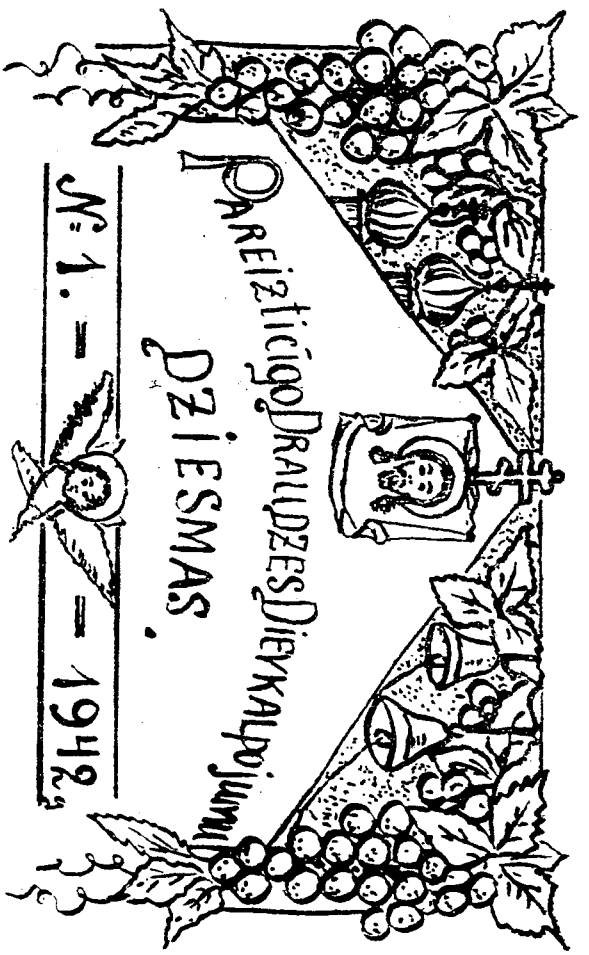 Pareizticīgo Draudzes Dievkalpojumu
DZIESMAS.
№ 1. = = 1942